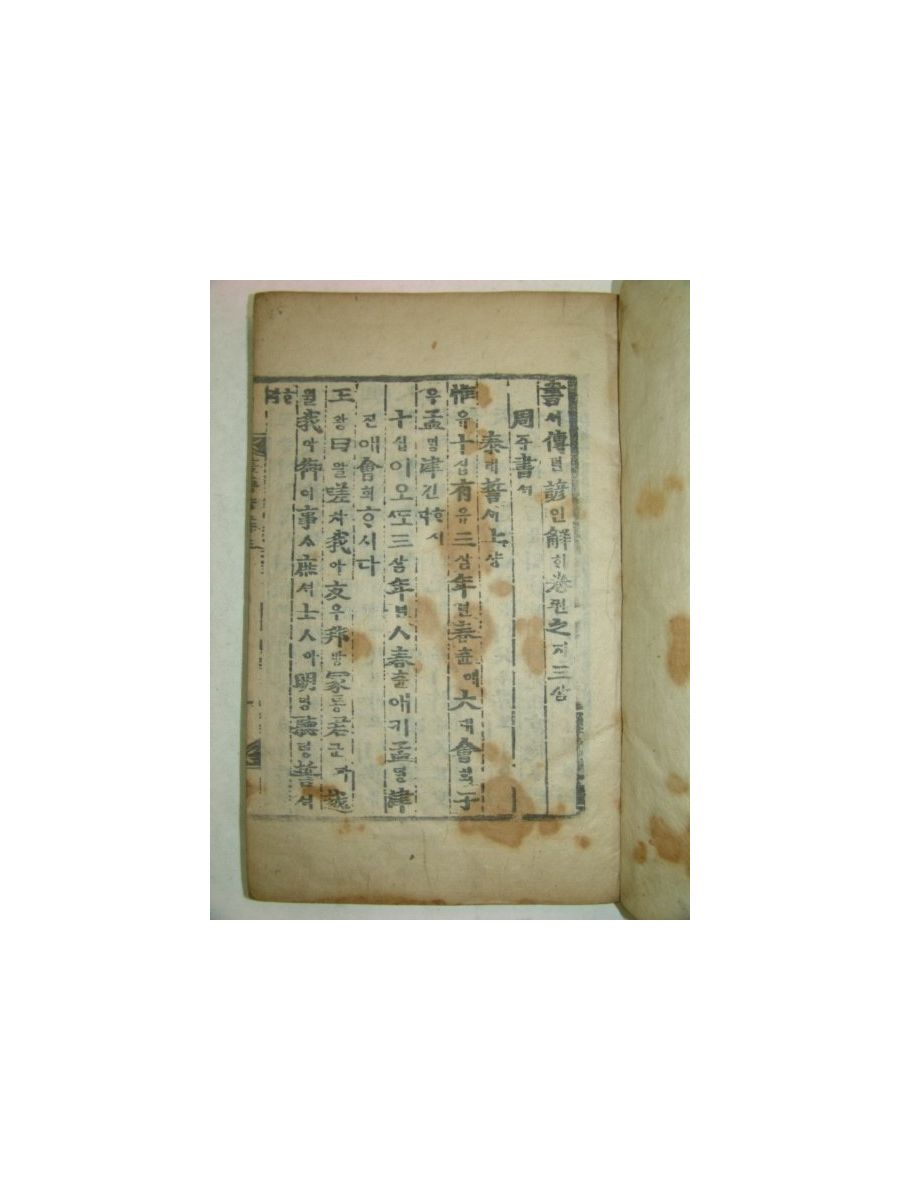 書셔傳뎐諺언解ᄒᆡ卷권之지三삼
周쥬書셔
泰태誓셔上샹
惟유十십有유三삼年년春츈애大대會회于
우孟ᄆᆡᆼ津진ᄒᆞ시다
十십이오ᄯᅩ三삼年년人春츈애키孟ᄆᆡᆼ津
진애會회ᄒᆞ시다
王왕曰왈嗟차我아友우邦방冢통君군과越
월我아御어事ᄉᆞ庶셔士ᄉᆞ아明명聽텽誓셔
ᄒᆞ라